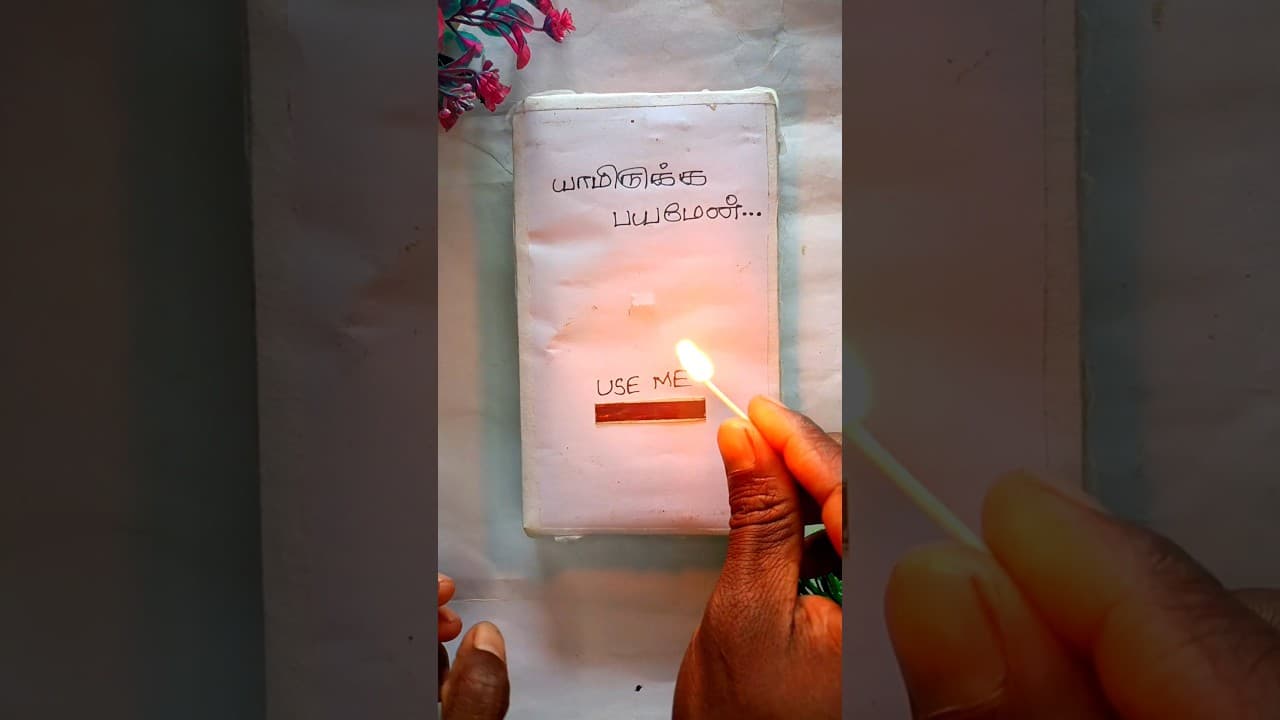 யாமிருக்க
பயமேன்...
USE ME